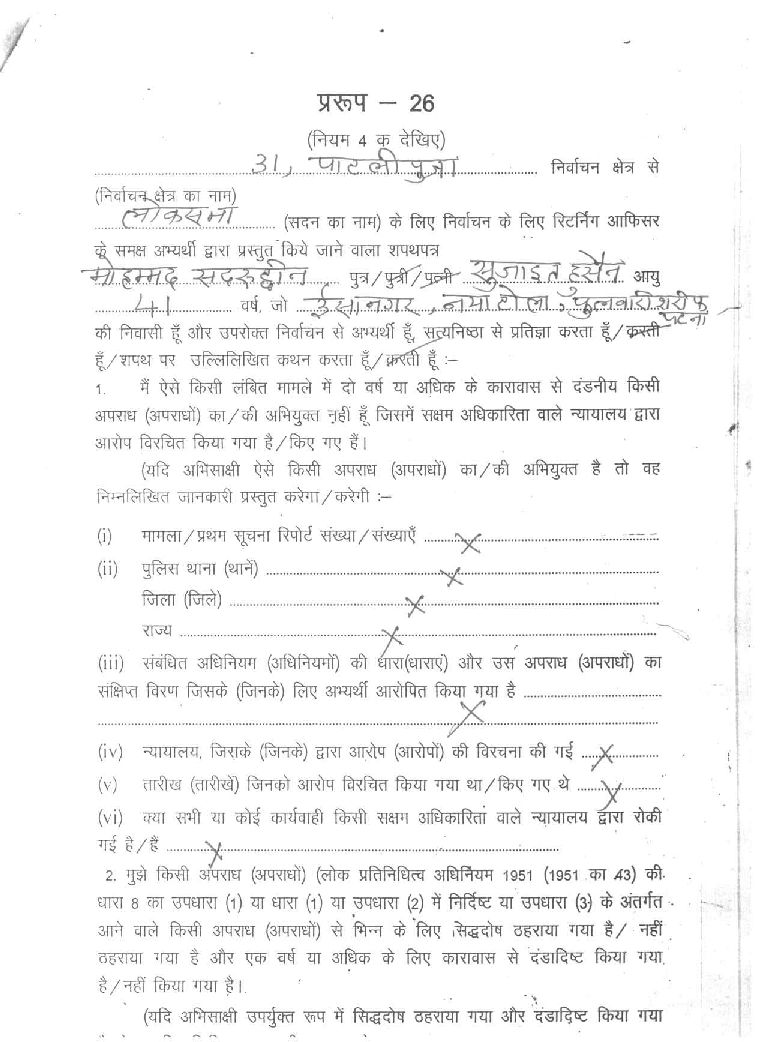 प्ररूप – 26
(नियम 4 क देखिए)
31, पाटलीपुत्रा निर्वाचन क्षेत्र से
(निर्वाचन क्षेत्र का नाम)
लोकसभा (सदन का नाम) के लिए निर्वाचन के लिए रिटर्निंग आफिसर
के समक्ष अभ्यर्थी द्वारा प्रस्तुत किये जाने वाला शपथपत्र
मोहम्मद सदरुद्दीन पुत्र/पुत्री/पत्नी सुजाइत हुसैन आयु
41 वर्ष, जो ईसानगर, नयाटोला, फुलवारी शरीफ
पटना
की निवासी हूँ और उपरोक्त निर्वाचन से अभ्यर्थी हूँ, सत्यनिष्ठा से प्रतिज्ञा करता हूँ/करती
हूँ/शपथ पर उल्लिलिखित कथन करता हूँ/करती हूँ :–
1. मैं ऐसे किसी लंबित मामले में दो वर्ष या अधिक के कारावास से दंडनीय किसी
अपराध (अपराधों) का/की अभियुक्त नहीं हूँ जिसमें सक्षम अधिकारिता वाले न्यायालय द्वारा
आरोप विरचित किया गया है/किए गए हैं।
(यदि अभिसाक्षी ऐसे किसी अपराध (अपराधों) का/की अभियुक्त है तो वह
निम्नलिखित जानकारी प्रस्तुत करेगा/करेगी :–
(i) मामला/प्रथम सूचना रिपोर्ट संख्या/संख्याएँ X
(ii) पुलिस थाना (थानें) X
जिला (जिले) X
राज्य X
(iii) संबंधित अधिनियम (अधिनियमों) की धारा(धाराएं) और उस अपराध (अपराधों) का
संक्षिप्त विरण जिसके (जिनके) लिए अभ्यर्थी आरोपित किया गया है
X
(iv) न्यायालय, जिराके (जिनके) द्वारा आरोप (आरोपों) की विरचना की गई X
(v) तारीख (तारीखें) जिनको आरोप विरचित किया गया था/किए गए थे X
(vi) क्या सभी या कोई कार्यवाही किसी सक्षम अधिकारिता वाले न्यायालय द्वारा रोकी
गई है/हैं X
2. मुझे किसी अपराध (अपराधों) (लोक प्रतिनिधित्व अधिनियम 1951 (1951 का 43) की
धारा 8 का उपधारा (1) या धारा (1) या उपधारा (2) में निर्दिष्ट या उपधारा (3) के अंतर्गत
आने वाले किसी अपराध (अपराधों) से भिन्न के लिए सिद्धदोष ठहराया गया है/ नहीं
ठहराया गया है और एक वर्ष या अधिक के लिए कारावास से दंडादिष्ट किया गया
है/नहीं किया गया है।
(यदि अभिसाक्षी उपर्युक्त रूप में सिद्धदोष ठहराया गया और दंडादि़ष्ट किया गया